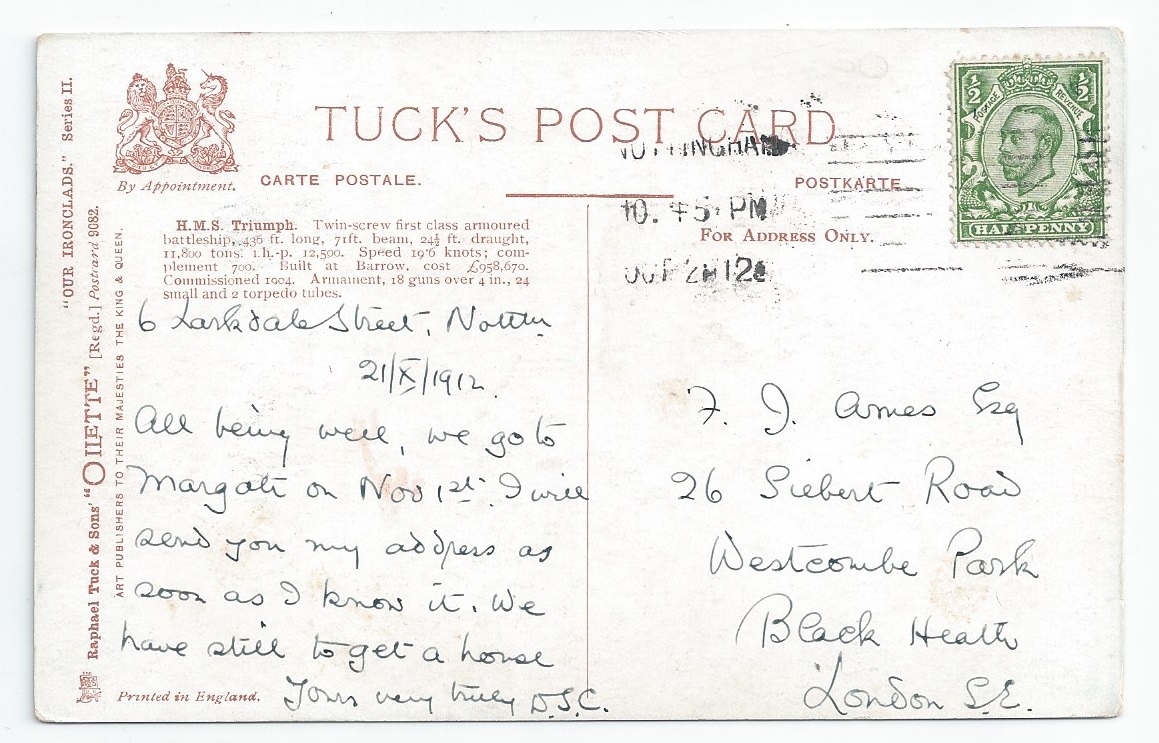 "OUR IRONCLADS." Series II.
Raphael Tuck & Sons' "OILETTE" [Regd.] Postcard 9082.
ART PUBLISHERS TO THEIR MAJESTIES THE KING & QUEEN.
By Appointment.
TUCK'S POST CARD
CARTE POSTALE.
POSTKARTE
FOR ADDRESS ONLY.
NOTTINGHAM
10.45 PM
OCT 21 12
½ ½
POSTAGE REVENUE
HALFPENNY
H.M.S. Triumph. Twin-screw first class armoured
battleship, 436 ft. long, 71ft. beam, 24½ ft. draught,
11,800 tons. i.h.-p. 12,500. Speed 19·6 knots; com-
plement 700. Built at Barrow, cost £958,670.
Commissioned 1904. Armament, 18 guns over 4 in., 24
small and 2 torpedo tubes.
6 Larkdale Street, Nottm
21/X/1912.
All being well, we go to
Margate on Nov 1st. I will
send you my address as
soon as I know it. We
have still to get a house
Yours very truly D.S.C.
Printed in England.
F. J. Ames Esq
26 Siebert Road
Westcombe Park
Black Heath
London S.E.